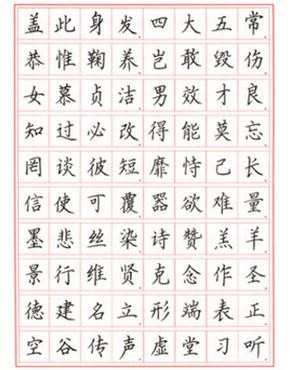 盖此身发四大五常
恭惟鞠养岂敢毁伤
女慕贞洁男效才良
知过必改得能莫忘
罔谈彼短靡恃己长
信使可覆器欲难量
墨悲丝染诗赞羔羊
景行维贤克念作圣
德建名立形端表正
空谷传声虚堂习听